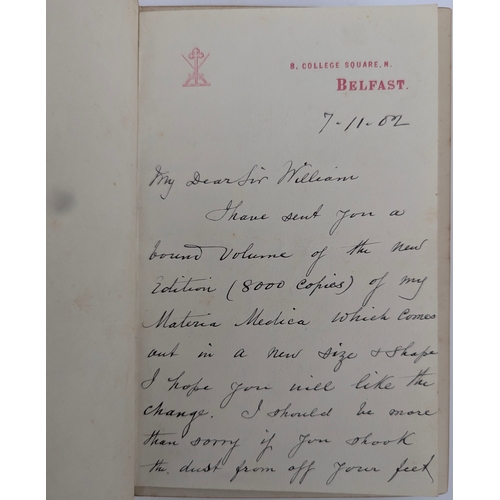 8, COLLEGE SQUARE, N.
BELFAST.
7-11-02
My Dear Sir William
I have sent you a
bound volume of the new
Edition (8000 copies) of my
Materia Medica which comes
out in a new size & shape
I hope you will like the
change. I should be more
than sorry if you shook
the dust from off your feet